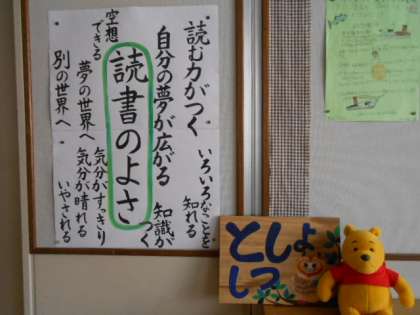 読む力がつく
いろいろなことを
知れる
自分の夢が広がる
知識が
つく
読書のよさ
空想
できる
気分がすっきり
夢の世界へ
気分が晴れる
別の世界へ
いやされる
としょ
しつ